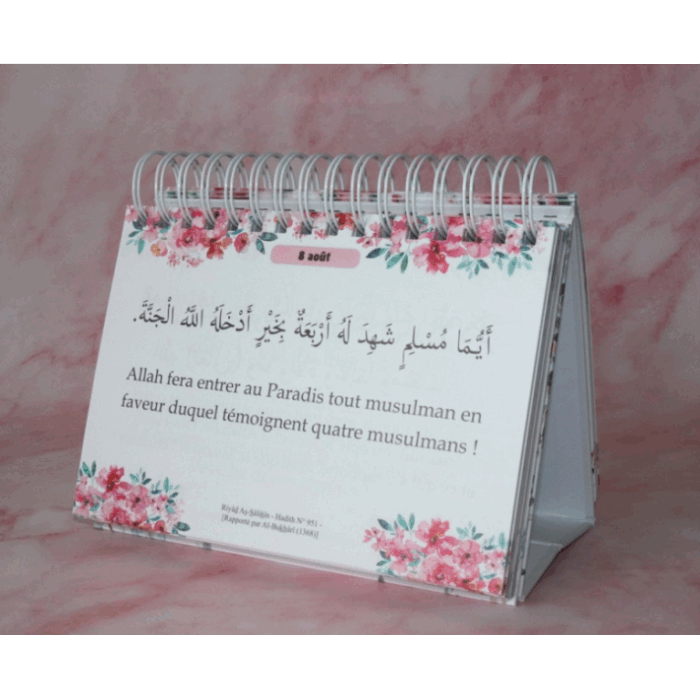 8 août
أَيُّمَا مُسْلِمٍ شَهِدَ لَهُ أَرْبَعَةٌ بِخَيْرٍ أَدْخَلَهُ اللَّهُ الْجَنَّةَ.
Allah fera entrer au Paradis tout musulman en
faveur duquel témoignent quatre musulmans !
Riyâḍ Aṣ-Ṣâliḥîn - Hadith N° 951 -
[Rapporté par Al-Bukhârî (1368)]